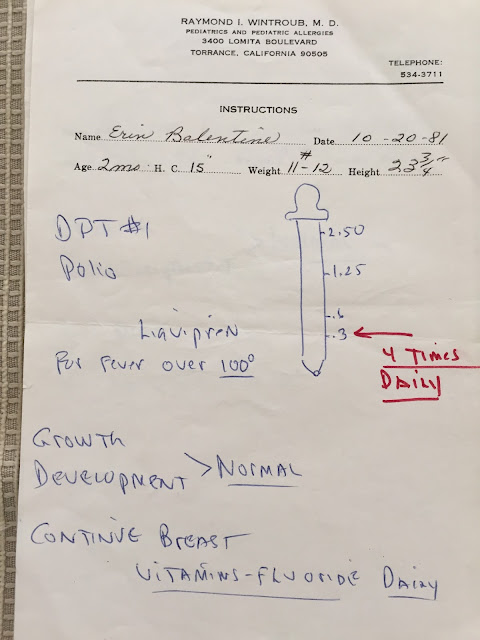 RAYMOND I. WINTROUB, M. D.
PEDIATRICS AND PEDIATRIC ALLERGIES
3400 LOMITA BOULEVARD
TORRANCE, CALIFORNIA 90505
TELEPHONE:
534-3711
INSTRUCTIONS
Name Erin Balentine Date 10-20-81
Age 2mo H. C. 15" Weight 11#-12 Height 23 3/4"
DPT #1
Polio
2.50
1.25
.6
.3
Liquipren
For fever over 100°
4 TIMES
DAILY
GROWTH
DEVELOPMENT > NORMAL
CONTINUE BREAST
VITAMINS-FLUORIDE DAILY